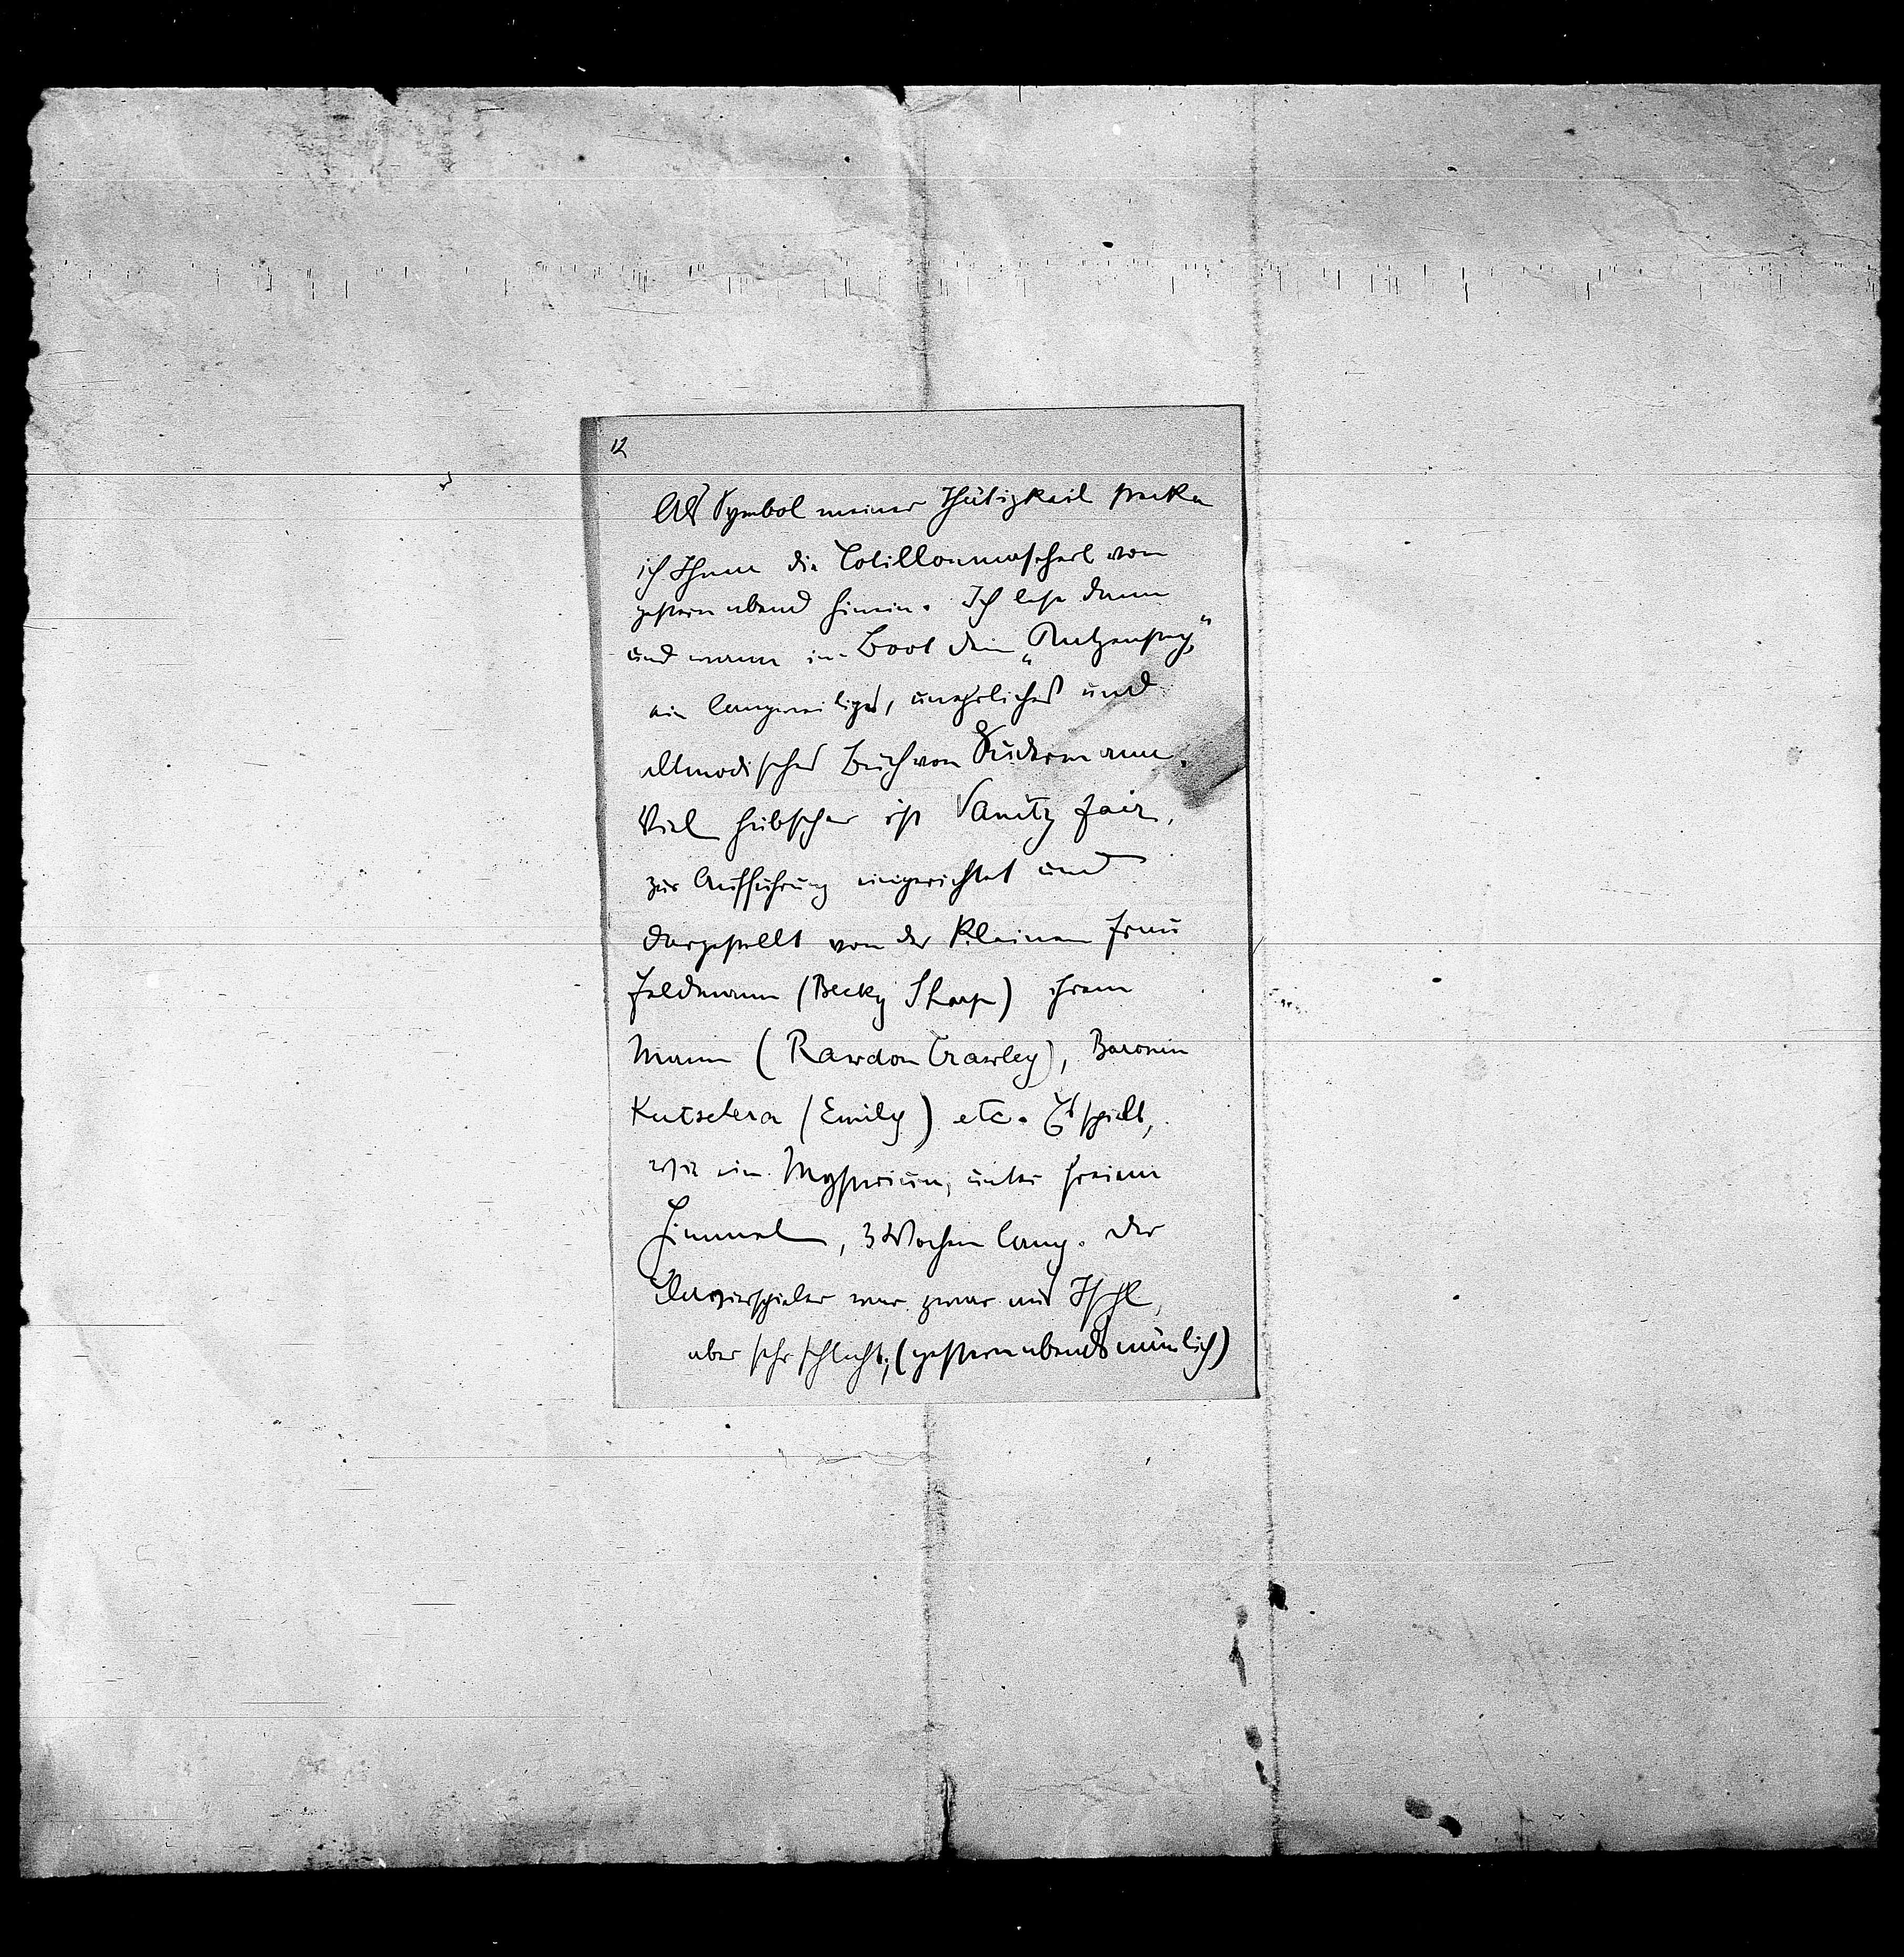 12
Als Symbol meiner Thätigkeit packe
ich Ihnen die Cotillonmascherl von
gestern abend hinein. Ich lese dann
und wann im Boot den „Katzensteg“,
ein langweiliges, unehrliches und
altmodisches Buch von Sudermann.
Viel hübscher ist Vanity fair,
zur Aufführung eingerichtet und
dargestellt von der kleinen Frau
Feldmann (Becky Sharp) ihrem
Mann (Rawdon Crawley), Baronin
Kutschera (Emily) etc. Es spielt,
wie ein Mysterium, unter freiem
Himmel, 3 Wochen lang. Der
Clavierspieler war zwar aus Ischl,
aber sehr schlecht; (gestern abends nämlich)